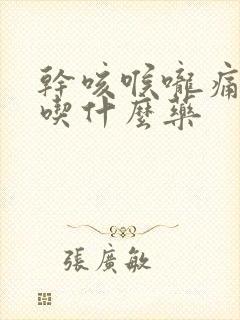 幹咳喉嚨痛
喫什麼藥
張廣敏